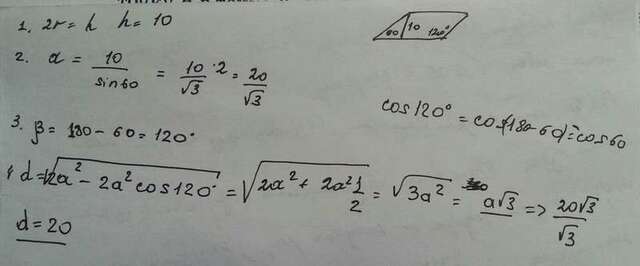 1. 2r = h   h = 10
60 10 120°
2. a = 10/sin60 = 10/√3 · 2 = 20/√3
cos120° = cos(180-60) = -cos60
3. β = 180 - 60 = 120°
4. d = √(2a² - 2a² cos120°) = √(2a² + 2a² 1/2) = √(3a²) = a√3 => 20√3/√3
d = 20